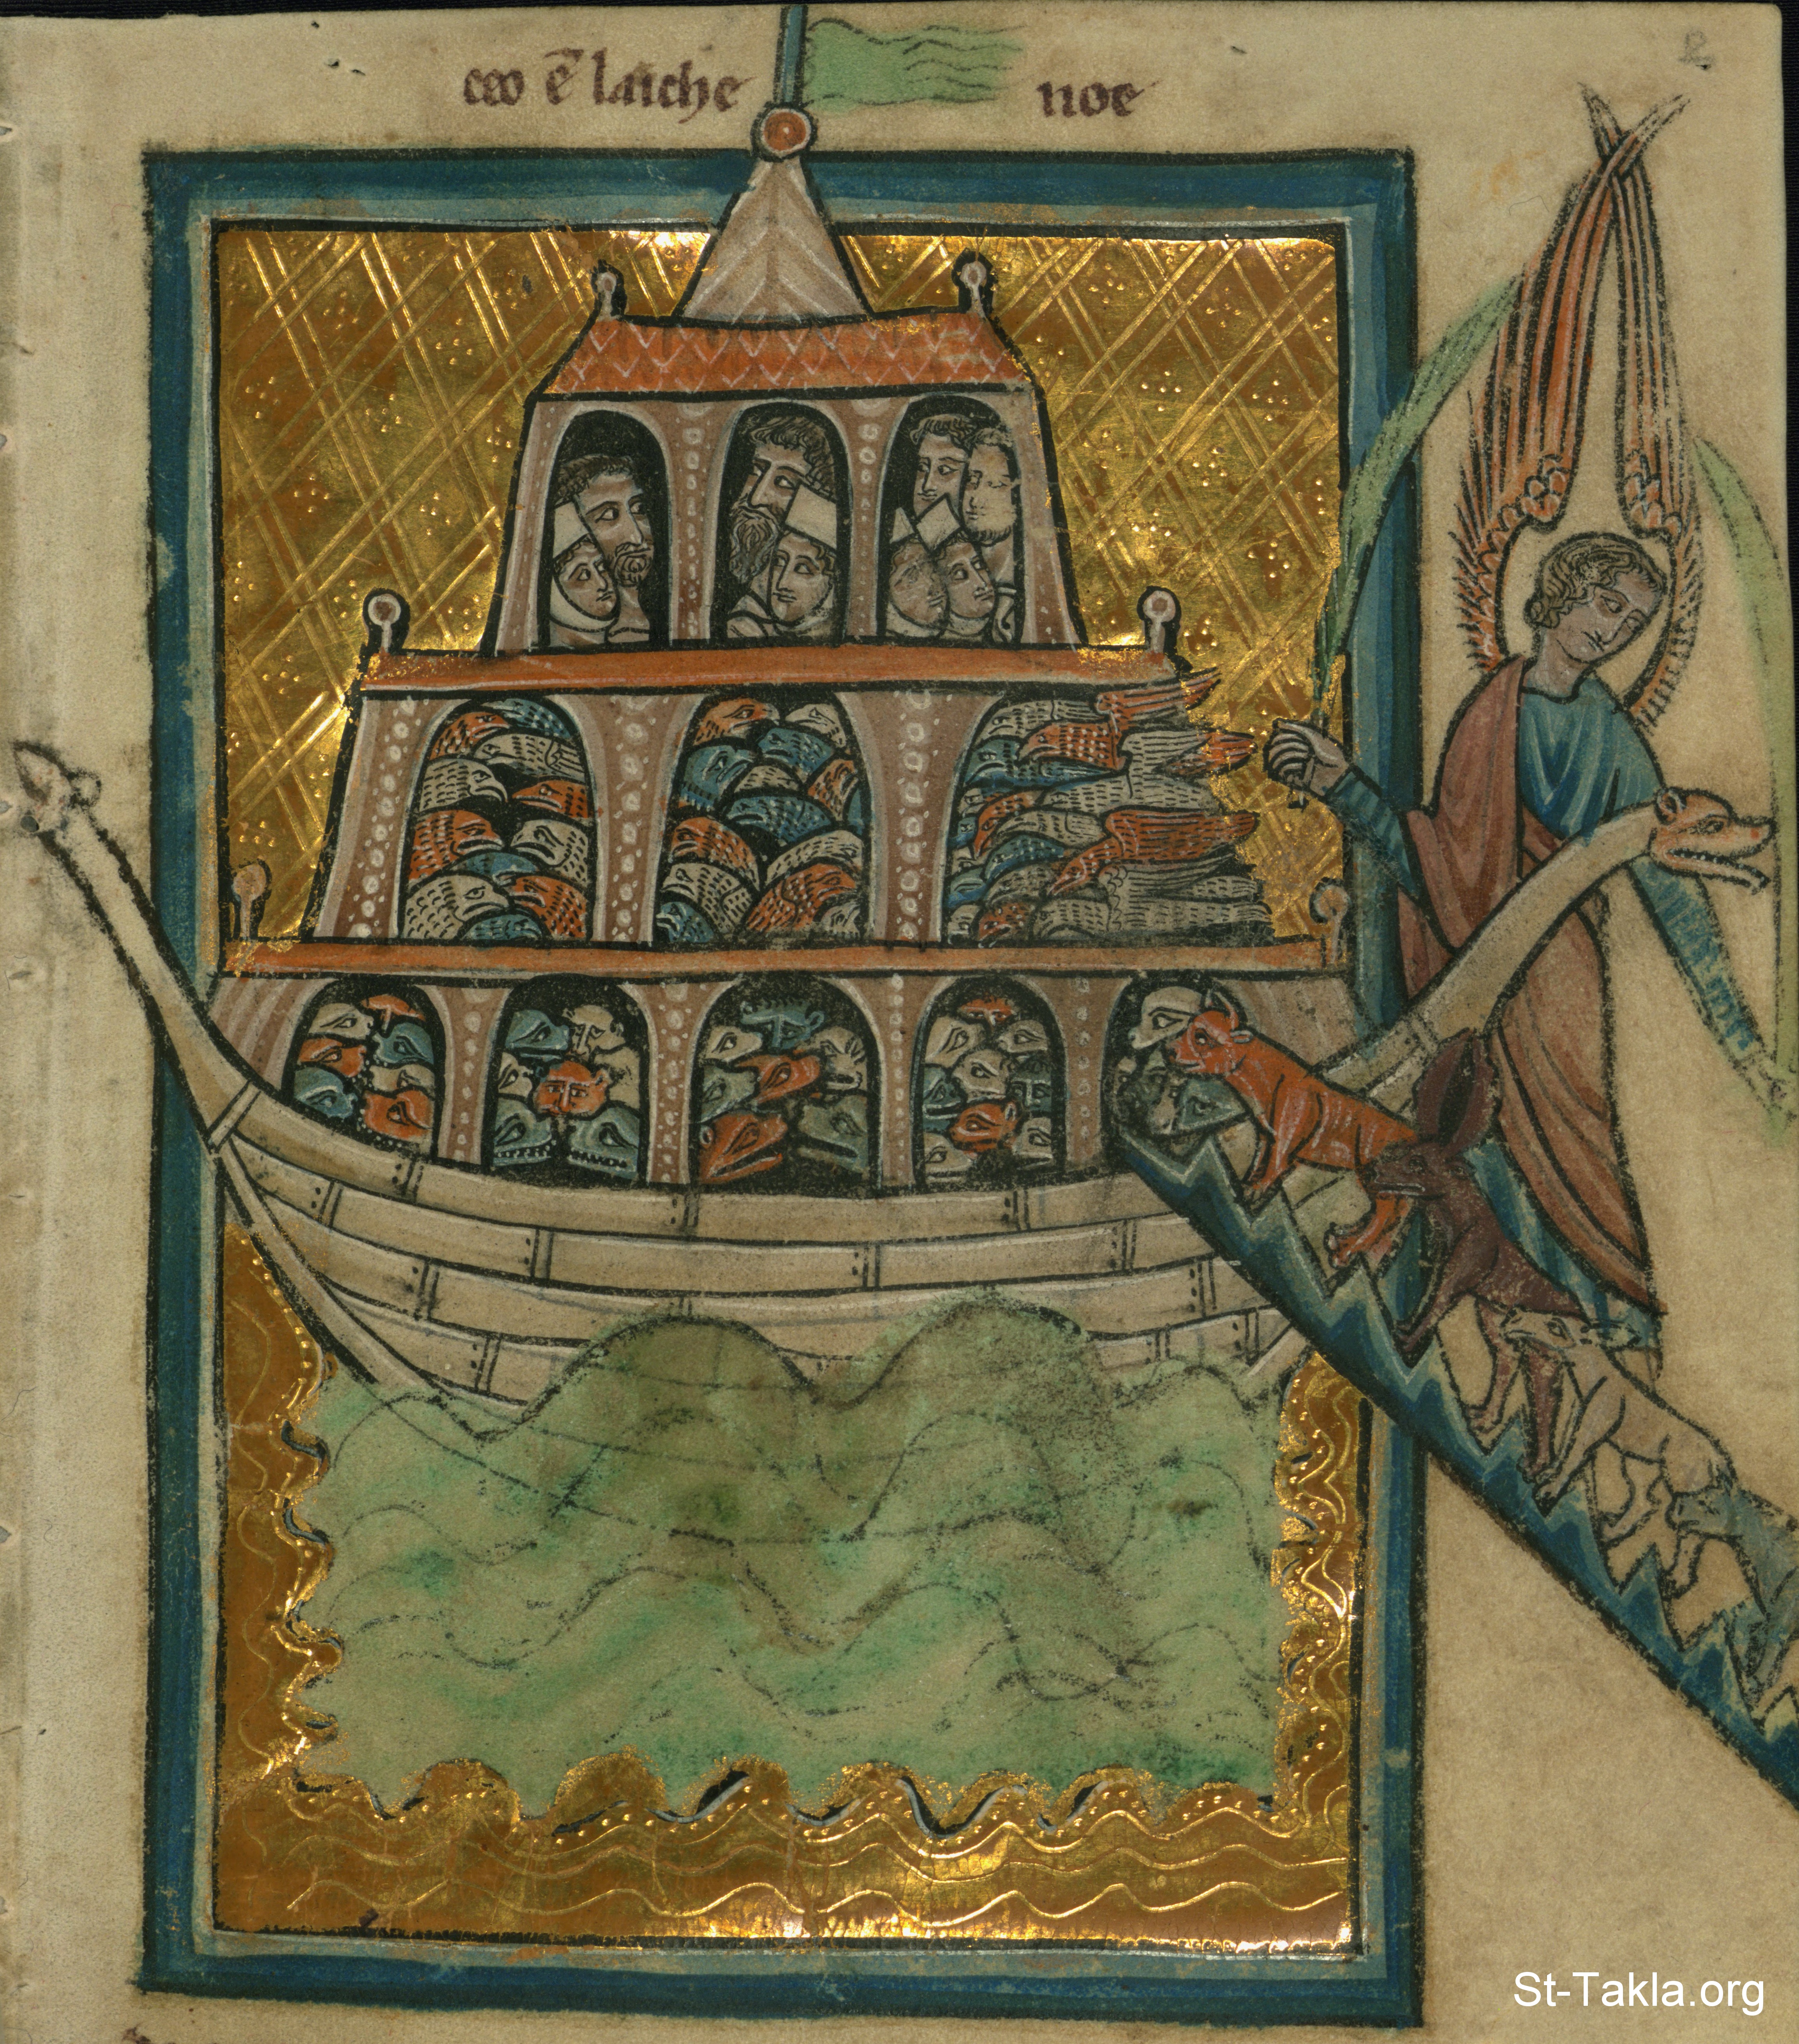 ceo ē laiche noe
St-Takla.org